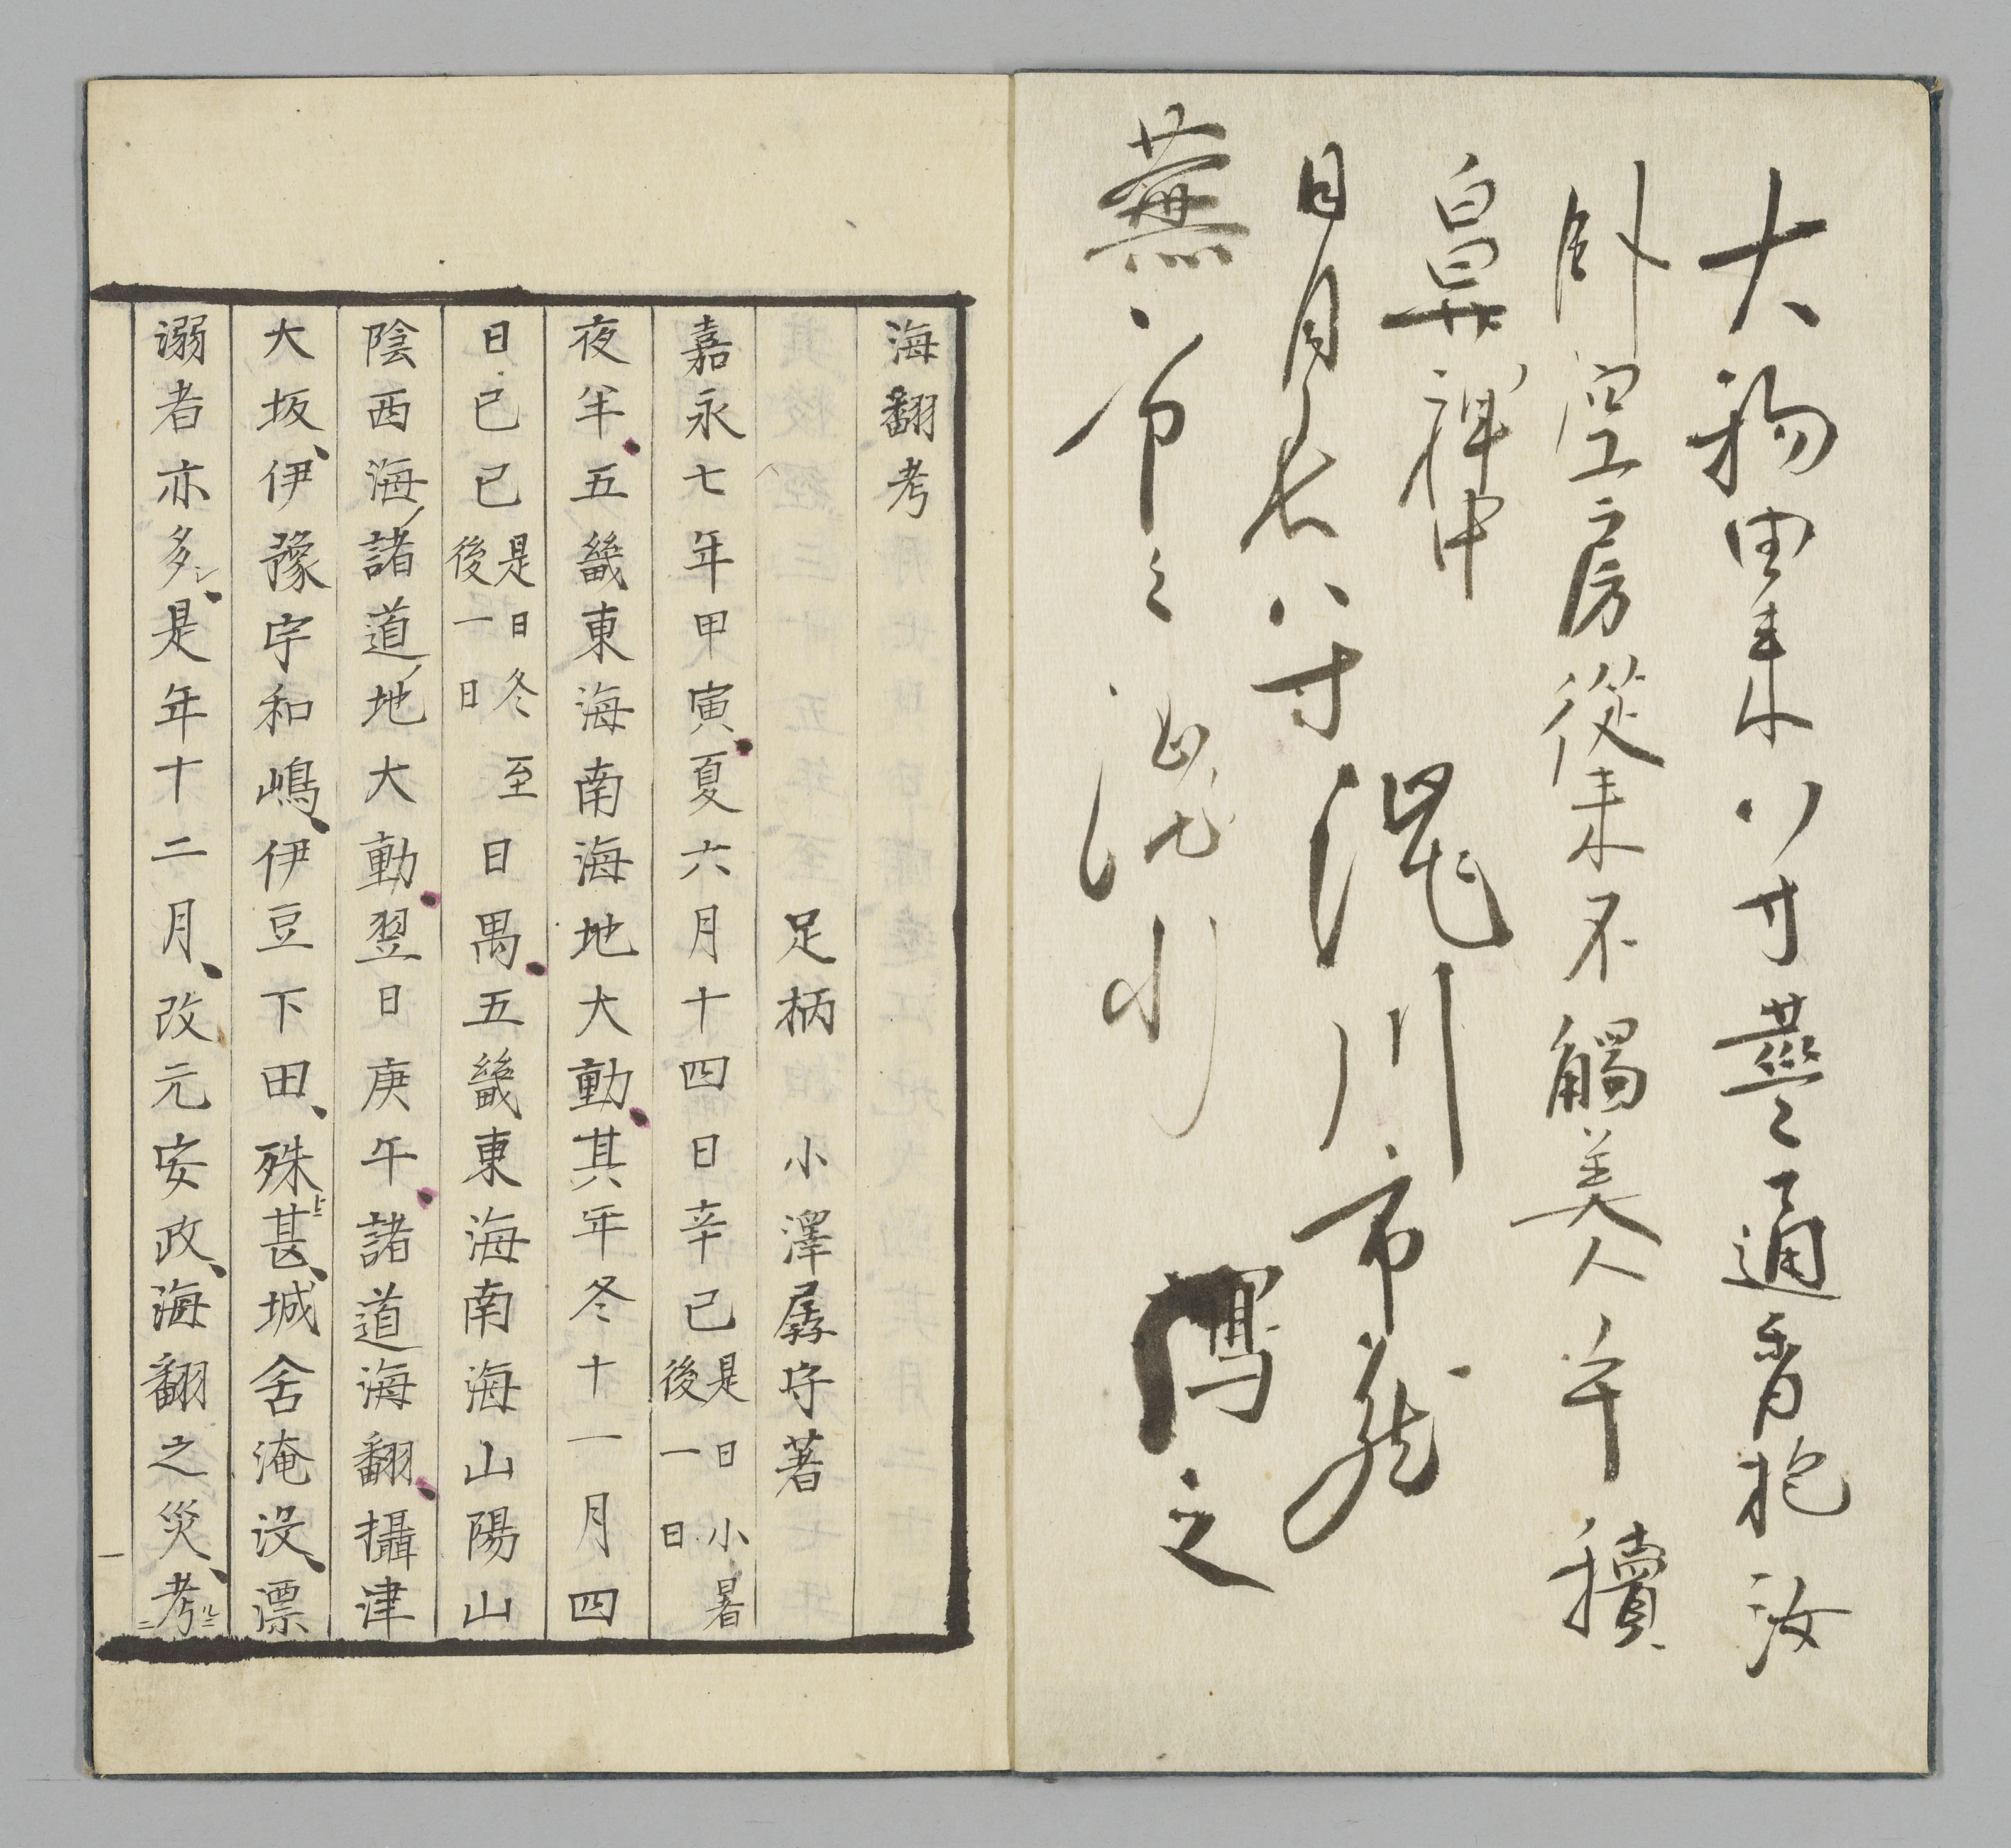 大物由来八寸
通宵抱汝
臥空房従来不觸美人
犢
鼻褌中
日月長八寸
滝川
市
蕪
寫之
海翻考
足柄 小澤孱守著
嘉永七年甲寅夏六月十四日辛巳是日小暑後一日
夜半五畿東海南海地大動其年冬十一月四
日己巳是日冬至後一日日禺五畿東海南海山陽山
陰西海諸道地大動翌日庚午諸道海翻攝津
大坂伊豫宇和嶋伊豆下田殊甚城舍淹没漂
溺者亦多是年十二月改元安政海翻之災考
一